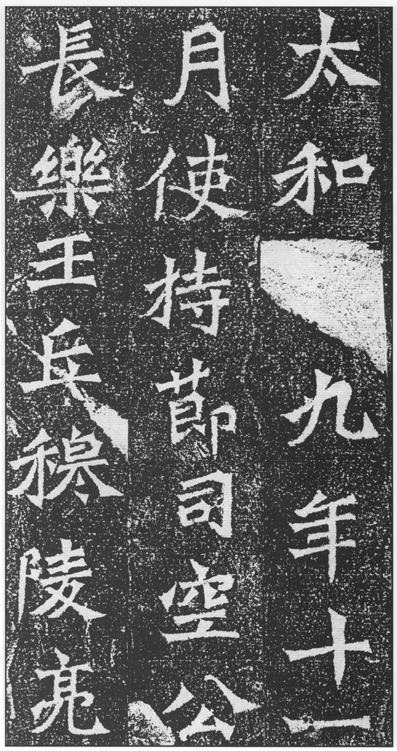 太和九年十一
月使持節司空公
長樂王丘穆陵亮